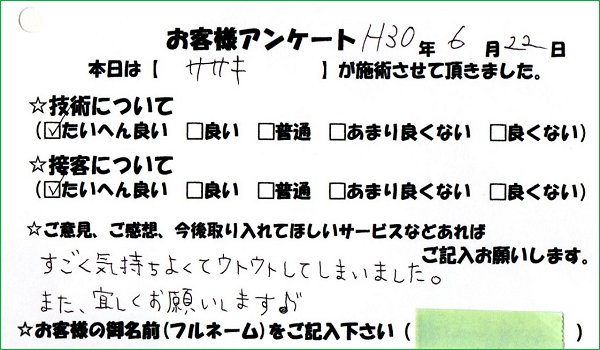 お客様アンケート H30年 6月22日
本日は【 ササキ 】が施術させて頂きました。
☆技術について
(☑たいへん良い □良い □普通 □あまり良くない □良くない)
☆接客について
(☑たいへん良い □良い □普通 □あまり良くない □良くない)
☆ご意見、ご感想、今後取り入れてほしいサービスなどあれば
ご記入お願いします。
すごく気持ちよくてウトウトしてしまいました。
また、宜しくお願いします♪
☆お客様の御名前(フルネーム)をご記入下さい( )